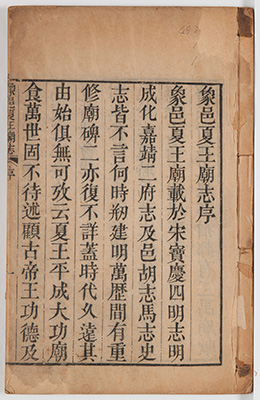 象邑夏王廟志序
象邑夏王廟載於宋寶慶四明志明
成化嘉靖二府志及邑胡志馬志史
志皆不言何時剏建明萬歷間有重
修廟碑二亦復不詳蓋時代久遠其
由始俱無可攷云夏王平成大功廟
食萬世固不待述顯古帝王功德及
象邑夏王廟志 序